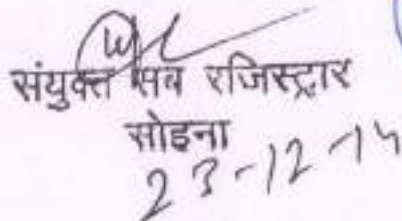 संयुक्त सब रजिस्ट्रार
सोहना
23-12-14